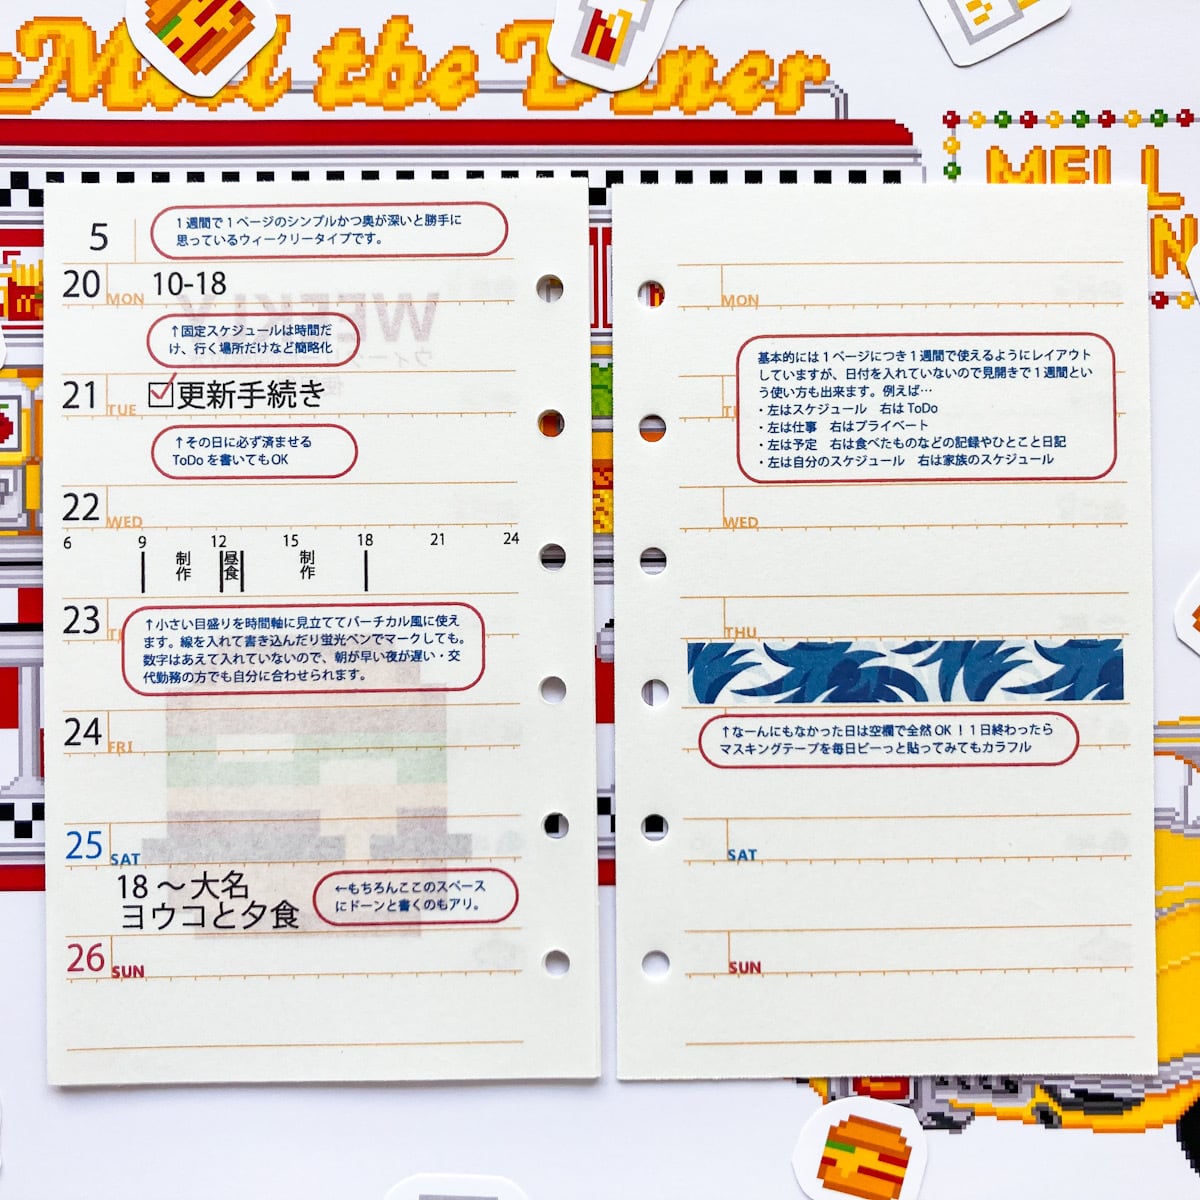 Mell the Diner
MELL
5
1週間で1ページのシンプルかつ奥が深いと勝手に
思っているウィークリータイプです。
20 MON 10-18
↑固定スケジュールは時間だ
け、行く場所だけなど簡略化
21 TUE ☑更新手続き
↑その日に必ず済ませる
ToDo を書いてもOK
22 WED
6 9 12 15 18 21 24
制作 昼食 制作
23
↑小さい目盛りを時間軸に見立ててバーチカル風に使え
ます。線を入れて書き込んだり蛍光ペンでマークしても。
数字はあえて入れていないので、朝が早い夜が遅い・交
代勤務の方でも自分に合わせられます。
24 FRI
25 SAT
18〜大名
ヨウコと夕食
←もちろんここのスペース
にドーンと書くのもアリ。
26 SUN
MON
基本的には1ページにつき1週間で使えるようにレイアウト
していますが、日付を入れていないので見開きで1週間とい
う使い方も出来ます。例えば…
・左はスケジュール　右は ToDo
・左は仕事　右はプライベート
・左は予定　右は食べたものなどの記録やひとこと日記
・左は自分のスケジュール　右は家族のスケジュール
WED
THU
↑なーんにもなかった日は空欄で全然 OK！1日終わったら
マスキングテープを毎日ビーっと貼ってみてもカラフル
SAT
SUN